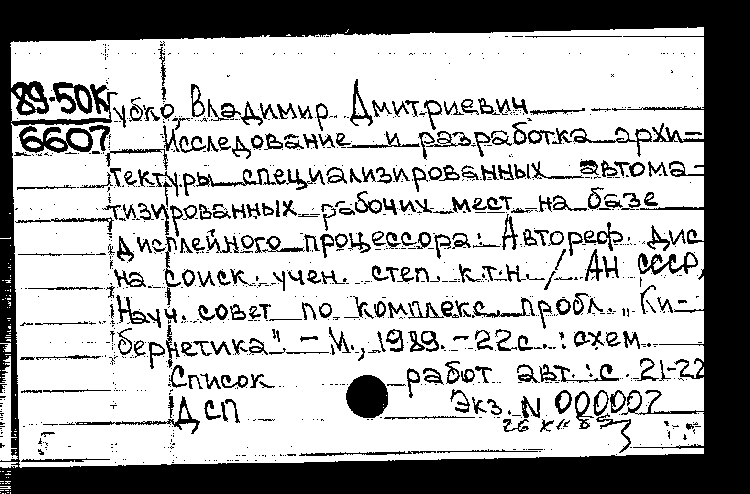 89-50К
6607
Губко, Владимир Дмитриевич
Исследование и разработка архи-
тектуры специализированных автома-
тизированных рабочих мест на базе
дисплейного процессора: Автореф. дис
на соиск. учен. степ. к.т.н. / АН СССР,
Науч. совет по комплекс. пробл. „Ки-
бернетика". – М., 1989. – 22с. : схем.
Список работ авт.: с. 21-22
ДСП Экз. N 000007
5